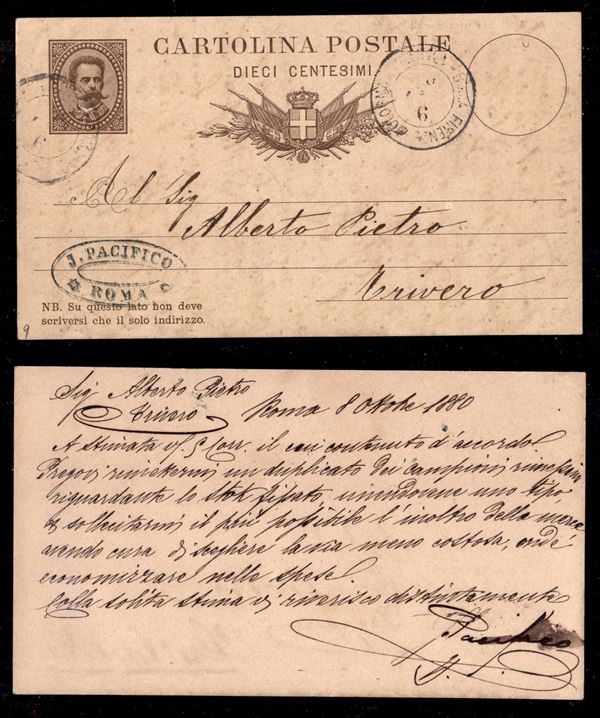 CARTOLINA POSTALE
DIECI CENTESIMI
6
Al Sig
Alberto Pietro
Trivero
J. PACIFICO
ROMA
NB. Su questo lato non deve
scriversi che il solo indirizzo.
9
Sig Alberto Pietro
Trivero Roma 8 Ottobre 1880
A stimata il cui contenuto d'accordo
Pregovi rimettermi un duplicato dei campioni
riguardante lo stok fissato, unendovene uno tipo
sollecitarmi il più possibile l'inoltro della merce
avendo cura di scegliere la via meno costosa, onde
economizzare nelle spese.
Colla solita stima vi riverisco distintamente
J. Pacifico